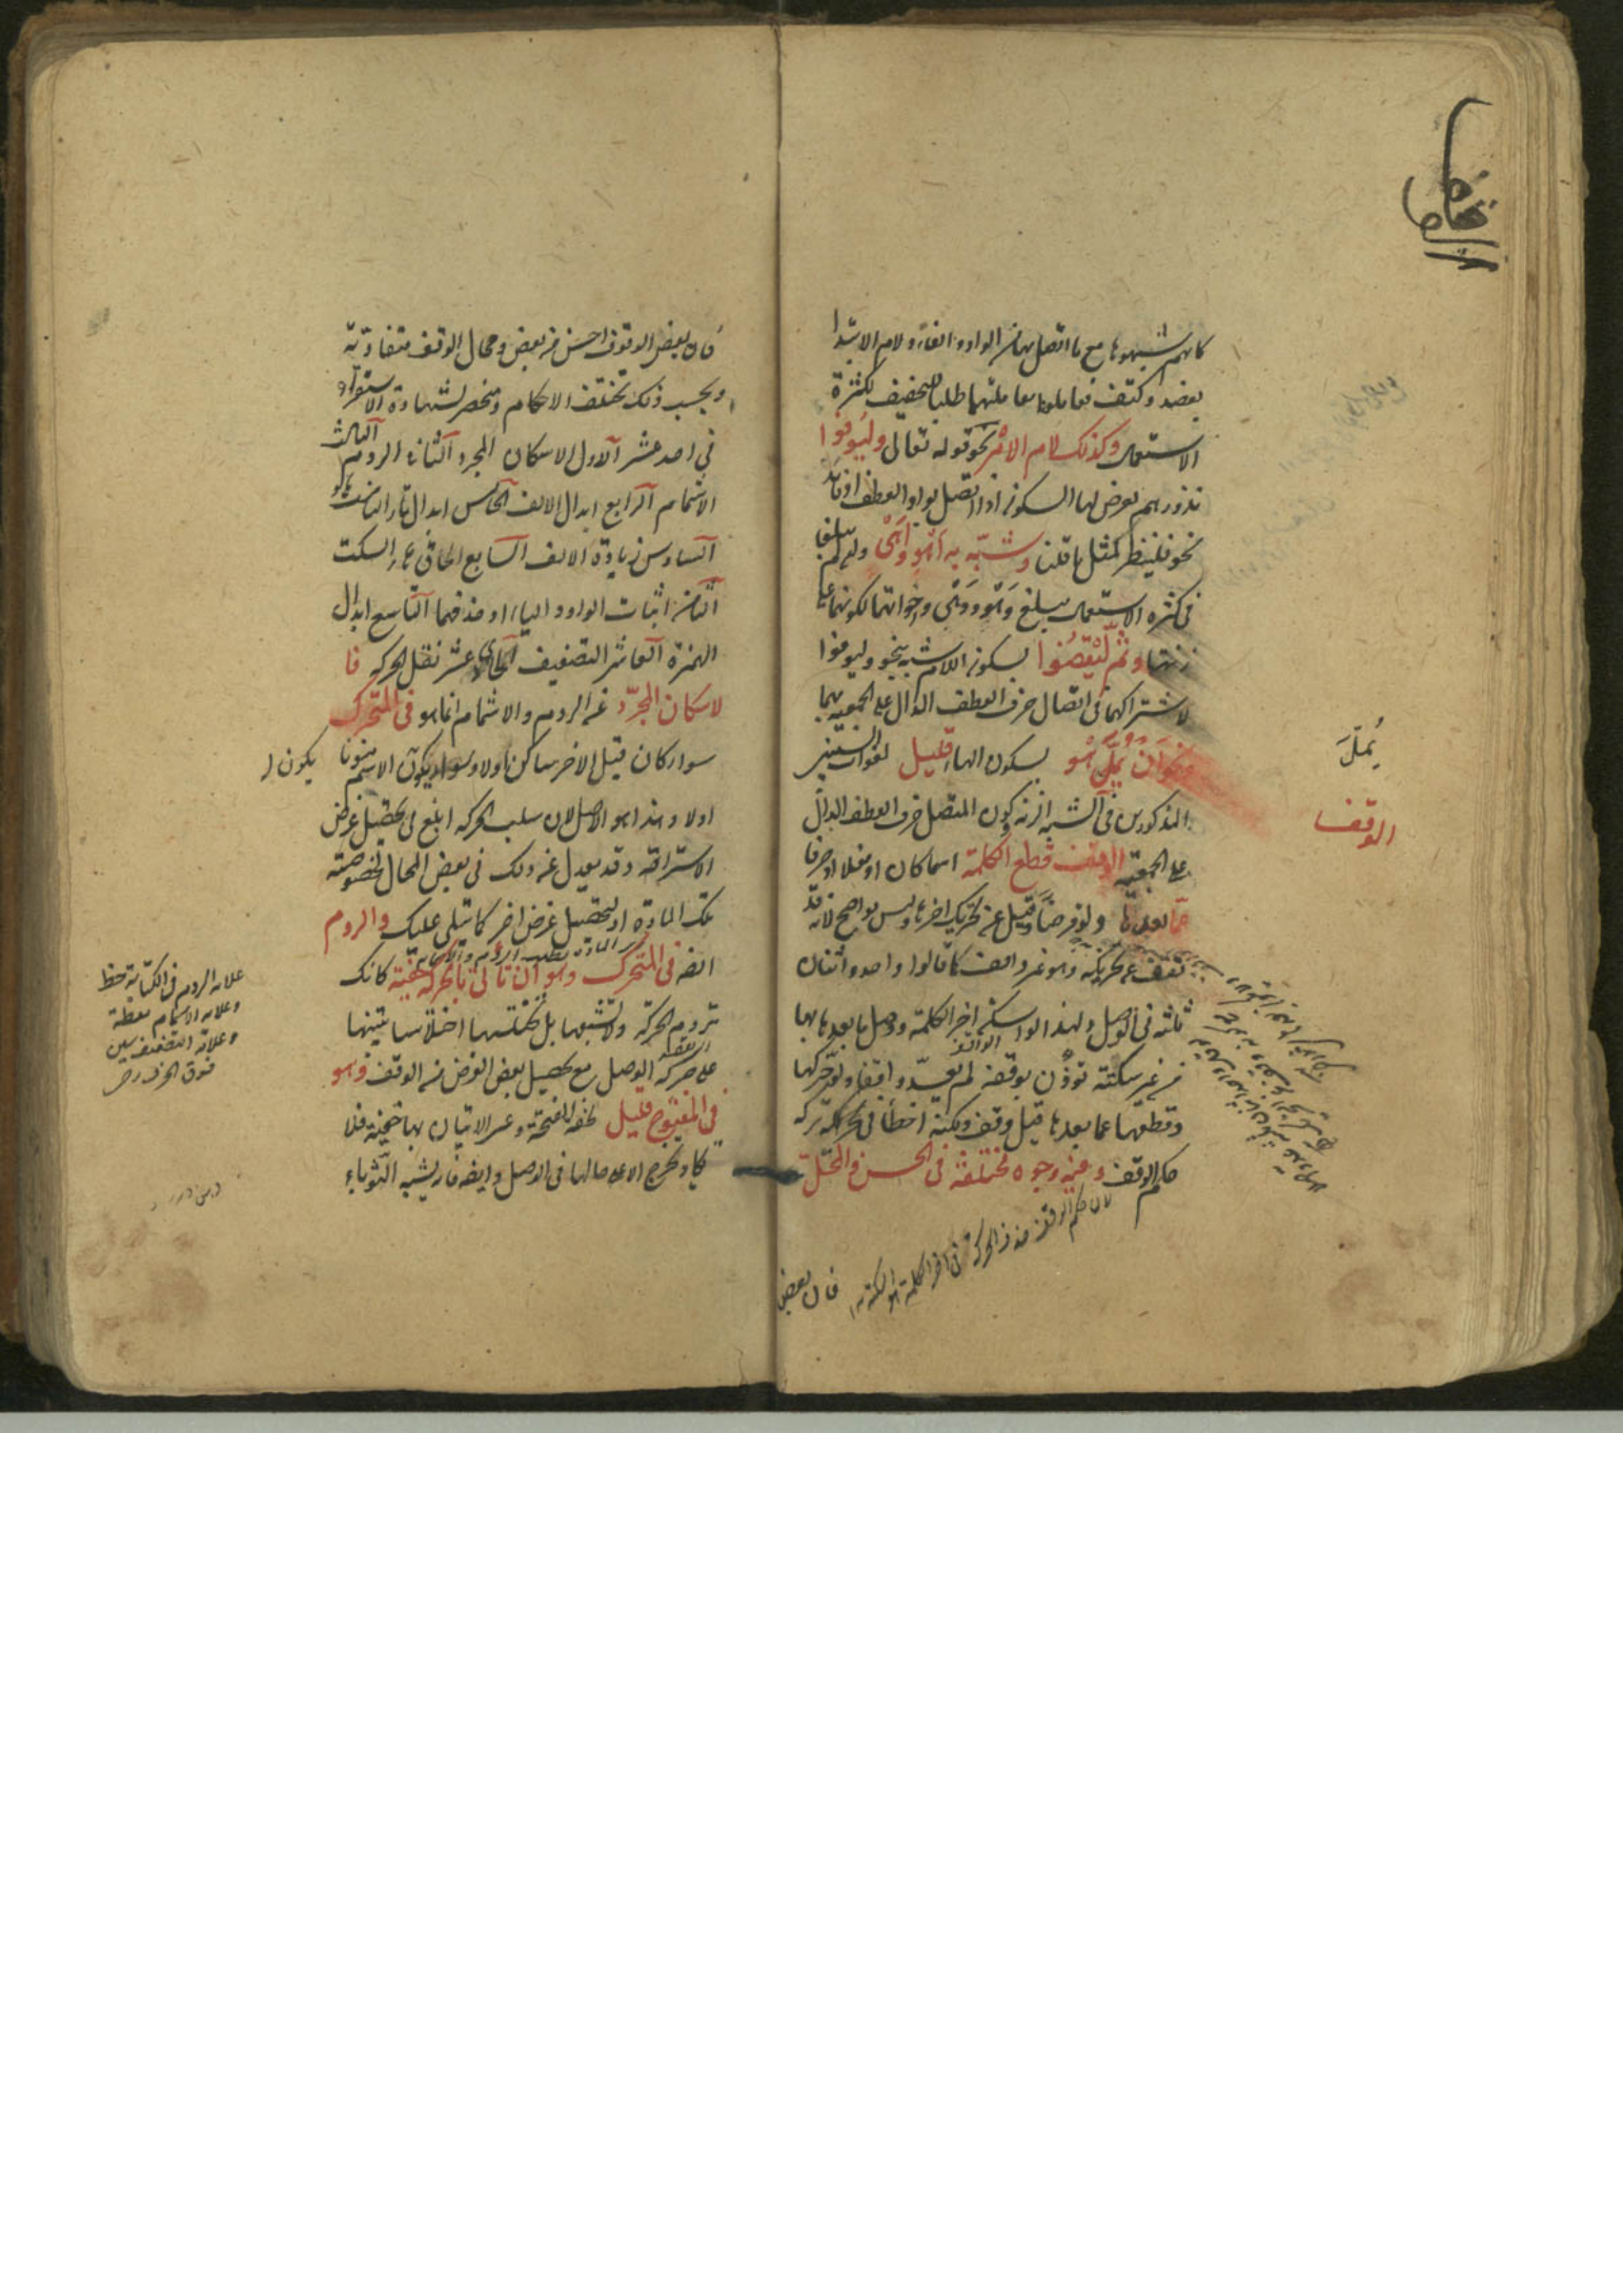 كانهم شبهوها مع ما اتصل بها من الواو والفاء ولام الابتدا
بعضد وكتف فعاملوها معاملتهما طلبا للتخفيف لكثرة
الاستعمال وكذلك لام الامر نحو قوله تعالى وليوفوا
نذورهم يعرض لها السكون اذا اتصل بواو العطف او فائه
نحو فلينظر لمثل ما قلنا وشبه به اهو واهى ولم يبلغا
فى كثرة الاستعمال مبلغ وهو وهى واخواتهما لكونهما على
زنتها وثم ليقضوا بسكون اللام شبه بنحو وليوفوا
لاشتراكهما فى اتصال حرف العطف الدال على الجمعية بهما
ونحو ان يمل هو بسكون الهاء قليل لفوات الشيئين
المذكورين فى الشبه الزنة وكون المتصل حرف العطف الدال
على الجمعية الوقف قطع الكلمة اسما كان او فعلا او حرفا
عما بعدها ولو فرضا وقيل عن تحريك اخرها وليس بواضح لانه قد
تقف على تحريكه وهو غير واقف كما قالوا واحد واثنان
ثلثة فى الوصل ولهذا لو اسكن اخر الكلمة ووصل ما بعدها بها
من غير سكتة تؤذن بوقفة لم يعد واقفا ولو حركها
وقطعها عما بعدها قيل وقف ولكنه اخطأ فى تحركه تركه
حكم الوقف وفيه وجوه مختلفة فى الحسن والمحل
لان حكم الوقف حذف الحركة فى اخر الكلمة
فان بعض
يمل
الوقف
فان بعض الوقوف احسن من بعض ومحال الوقف متفاوتة
وبحسب ذلك تختلف الاحكام وتنحصر لشهادة الاستقراء
فى احد عشر الاول الاسكان المجرد الثانى الروم الثالث
الاشمام الرابع ابدال الالف الخامس ابدال تاء التانيث هاء
السادس زيادة الالف السابع الحاق هاء السكت
الثامن اثبات الواو والياء او حذفهما التاسع ابدال
الهمزة العاشر التضعيف الحادى عشر نقل الحركة فا
لاسكان المجرد عن الروم والاشمام انما هو فى المتحرك
سواء كان قبل الاخر ساكن اولا وسواء يكون الاسم منونا
اولا وهذا هو الاصل لان سلب الحركة ابلغ فى تحصيل غرض
الاستراحة وقد يعدل عن ذلك فى بعض المحال لخصوصية
تلك المادة او لتحصيل غرض اخر كما يتلى عليك والروم
ايضا فى المتحرك وهو ان تاتى بالحركة خفية كانك
تروم الحركة ولا تشبعها بل تختلسها اختلاسا تنبيها
على حركة الوصل مع تحصيل بعض الغرض من الوقف وهو
فى المفتوح قليل لخفة الفتحة وعسر الاتيان بها خفية فلا
يكاد تخرج الا على حالها فى الوصل وايضا فانه يشبه الثوباء
علامة الروم فى الكتابة خط
وعلامة الاشمام نقطة
وعلامة التضعيف شين
فوق الحرف